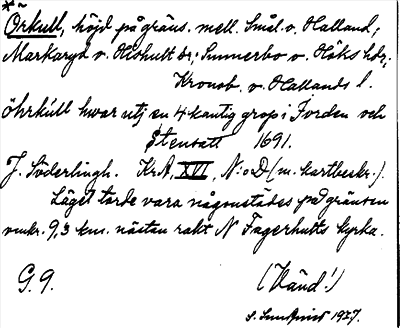 * Örkull, höjd på gräns. mell. Smål. o. Halland;
Markaryd o. Hishult sr; Sunnerbo o. Höks hdr;
Kronob. o. Hallands l.
öhrkull hwar utj en 4 kantig grop i Jorden och
Stensatt 1691.
J. Söderlingh. KrA, XVI, N:o D (m. kartbeskr.).
Läget torde vara någonstädes på gränsen
omkr. 9,3 km. nästan rakt N Fagerhults kyrka.
G. 9. (Vänd!)
S. Sundqvist 1927.